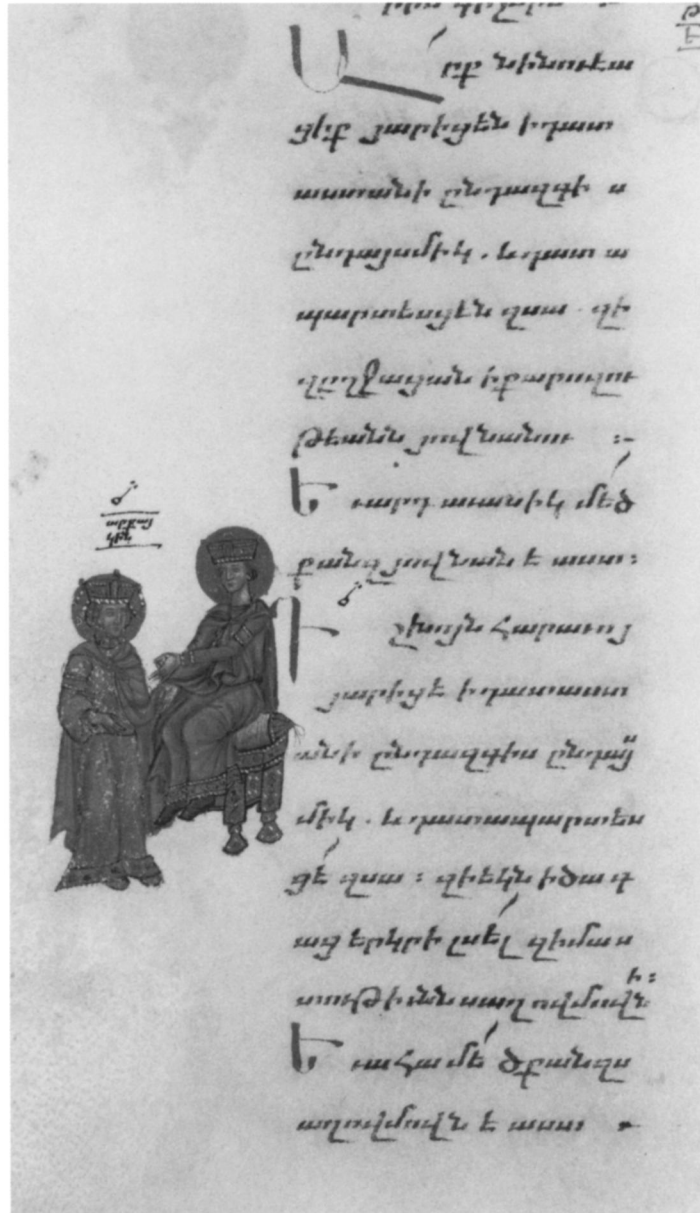 Արք նինուէա
ցիք յարիցէն ի դատ
աստանի ընդ ազգի ս
ընդ այսմիկ . և դատ ա
պարտեսցէն զսա . զի
զըղջացան ի քարոզու
թեանն յովնանու :-
Եւ արդ աւասիկ մեծ
քանզ յովնան է աստ :
Դշխոյն հարաւոյ
յարիցէ ի դատաստ
անի ընդ ազգիս ընդ այս
միկ . և դատապարտես
ցէ զսա : զի եկն ի ծագ
աց երկրի լսել զիմաս
տութիւնն սաղովմովնի :
Եւ ահա մեծ քան զս
աղովմովն է աստ .